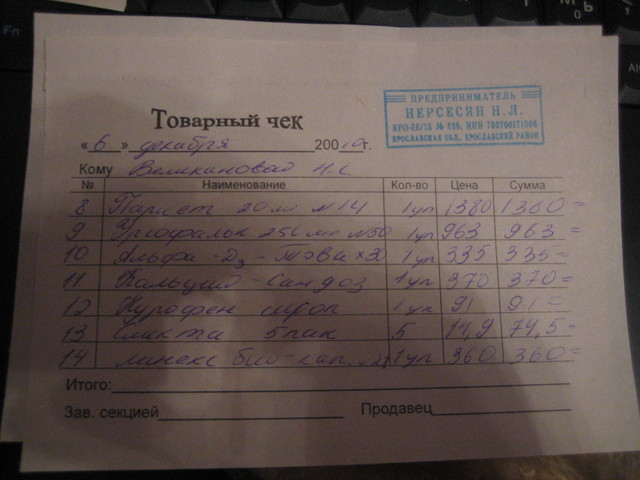 ПРЕДПРИНИМАТЕЛЬ
НЕРСЕСЯН Н.Л.
ЯРОСЛАВСКАЯ ОБЛ. ЯРОСЛАВСКИЙ РАЙОН
Товарный чек
« 6 » декабря 2001 г.
Кому Великановой Н.С.
№ Наименование Кол-во Цена Сумма
8 Париет 20 мг №14 1уп 1380 1380=
9 Урсофальк 250 мг №50 1уп 963 963=
10 Альфа-Д3-Тева х30 1уп 335 335=
11 Кальций-Сандоз 1уп 370 370=
12 Нурофен сироп 1уп 91 91=
13 5 пак 5 14,9 74,5=
14 Линекс био кап. 1уп 360 360=
Итого:
Зав. секцией Продавец
Fn